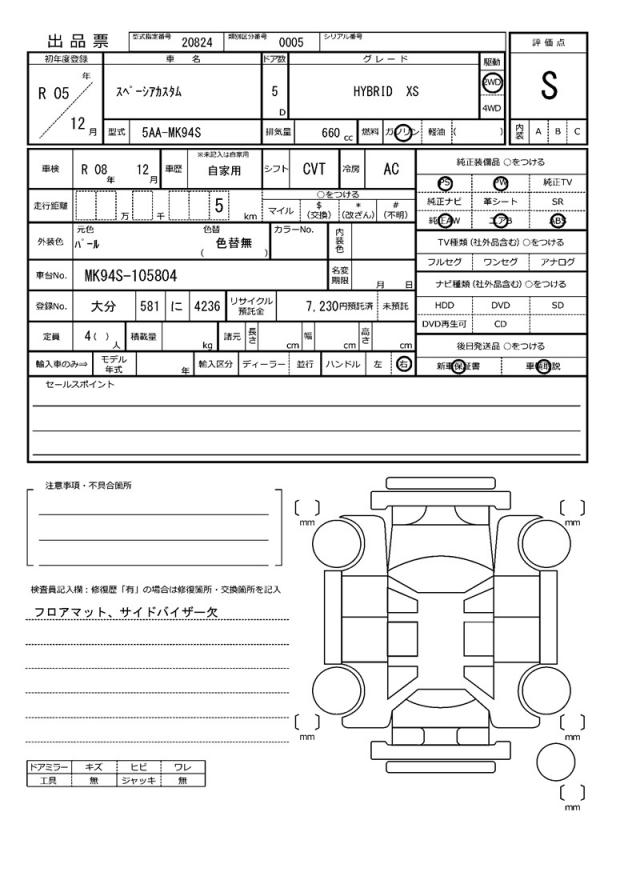 出品票
型式指定番号 20824 類別区分番号 0005 シリアル番号
評価点
初年度登録 車名 ドア数 グレード 駆動
R 05 年 12 月
スペーシアカスタム
5 D
HYBRID XS
2WD
4WD
S
型式 5AA-MK94S 排気量 660 cc 燃料 ガソリン 軽油 ( )
内装 A B C
車検 R 08 年 12 月 車歴 ※未記入は自家用 自家用 シフト CVT 冷房 AC
走行距離 万 千 5 km
○をつける
マイル $(交換) *(改ざん) #(不明)
外装色 元色 パール 色替 色替無 ( ) カラーNo. 内装色
車台No. MK94S-105804 名変期限 月 日
登録No. 大分 581 に 4236 リサイクル預託金 7,230円預託済 未預託
定員 4( )人 積載量 kg 諸元 長さ cm 幅 cm 高さ cm
輸入車のみ⇒ モデル年式 年 輸入区分 ディーラー 並行 ハンドル 左 右
純正装備品 ○をつける
PS PW 純正TV
純正ナビ 革シート SR
純正AW エアB ABS
TV種類 (社外品含む) ○をつける
フルセグ ワンセグ アナログ
ナビ種類 (社外品含む) ○をつける
HDD DVD SD
DVD再生可 CD
後日発送品 ○をつける
新車保証書 車輌取説
セールスポイント
注意事項・不具合箇所
検査員記入欄：修復歴「有」の場合は修復箇所・交換箇所を記入
フロアマット、サイドバイザー欠
ドアミラー キズ ヒビ ワレ
工具 無 ジャッキ 無
mm
mm
mm
mm
mm